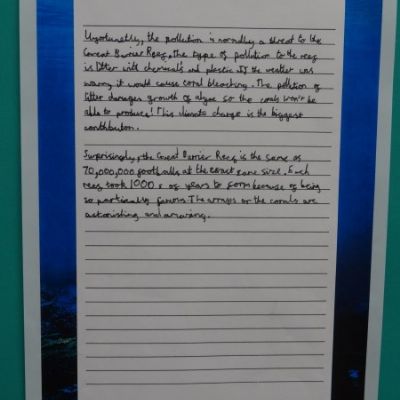 Unfortunatlly, the pollution is normally a threat to the
Great Barrier Reef. The type of pollution to the reef
is litter with chemicals and plastic. If the weather was
warm it would cause coral bleaching. The pollution of
litter damages growth of algae so the corals won't be
able to produce! This climate change is the biggest
contributor.
Surprisingly, the Great Barrier Reef is the same as
70,000,000 footballs at the exact same size. Each
reef took 1000s of years to form because of being
so partically famous. The arrays of the corals are
astonishing and amazing.